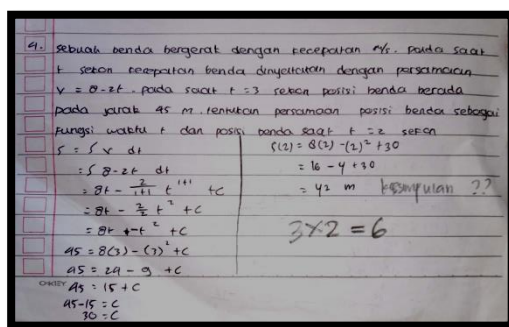 9. sebuah benda bergerak dengan kecepatan m/s. pada saat
t sekon kecepatan benda dinyatakan dengan persamaan
v = 8-2t. pada saat t = 3 sekon posisi benda berada
pada jarak 45 m. tentukan persamaan posisi benda sebagai
fungsi waktu t dan posisi benda saat t = 2 sekon
s = ∫ v dt
= ∫ 8-2t dt
= 8t - 2/1+1 t^1+1 + c
= 8t - 2/2 t² + c
= 8t + -t² + c
45 = 8(3) - (3)² + c
45 = 24 - 9 + c
45 = 15 + c
45-15 = c
30 = c
s(2) = 8(2) - (2)² + 30
= 16 - 4 + 30
= 42 m kesimpulan ??
3x2 = 6